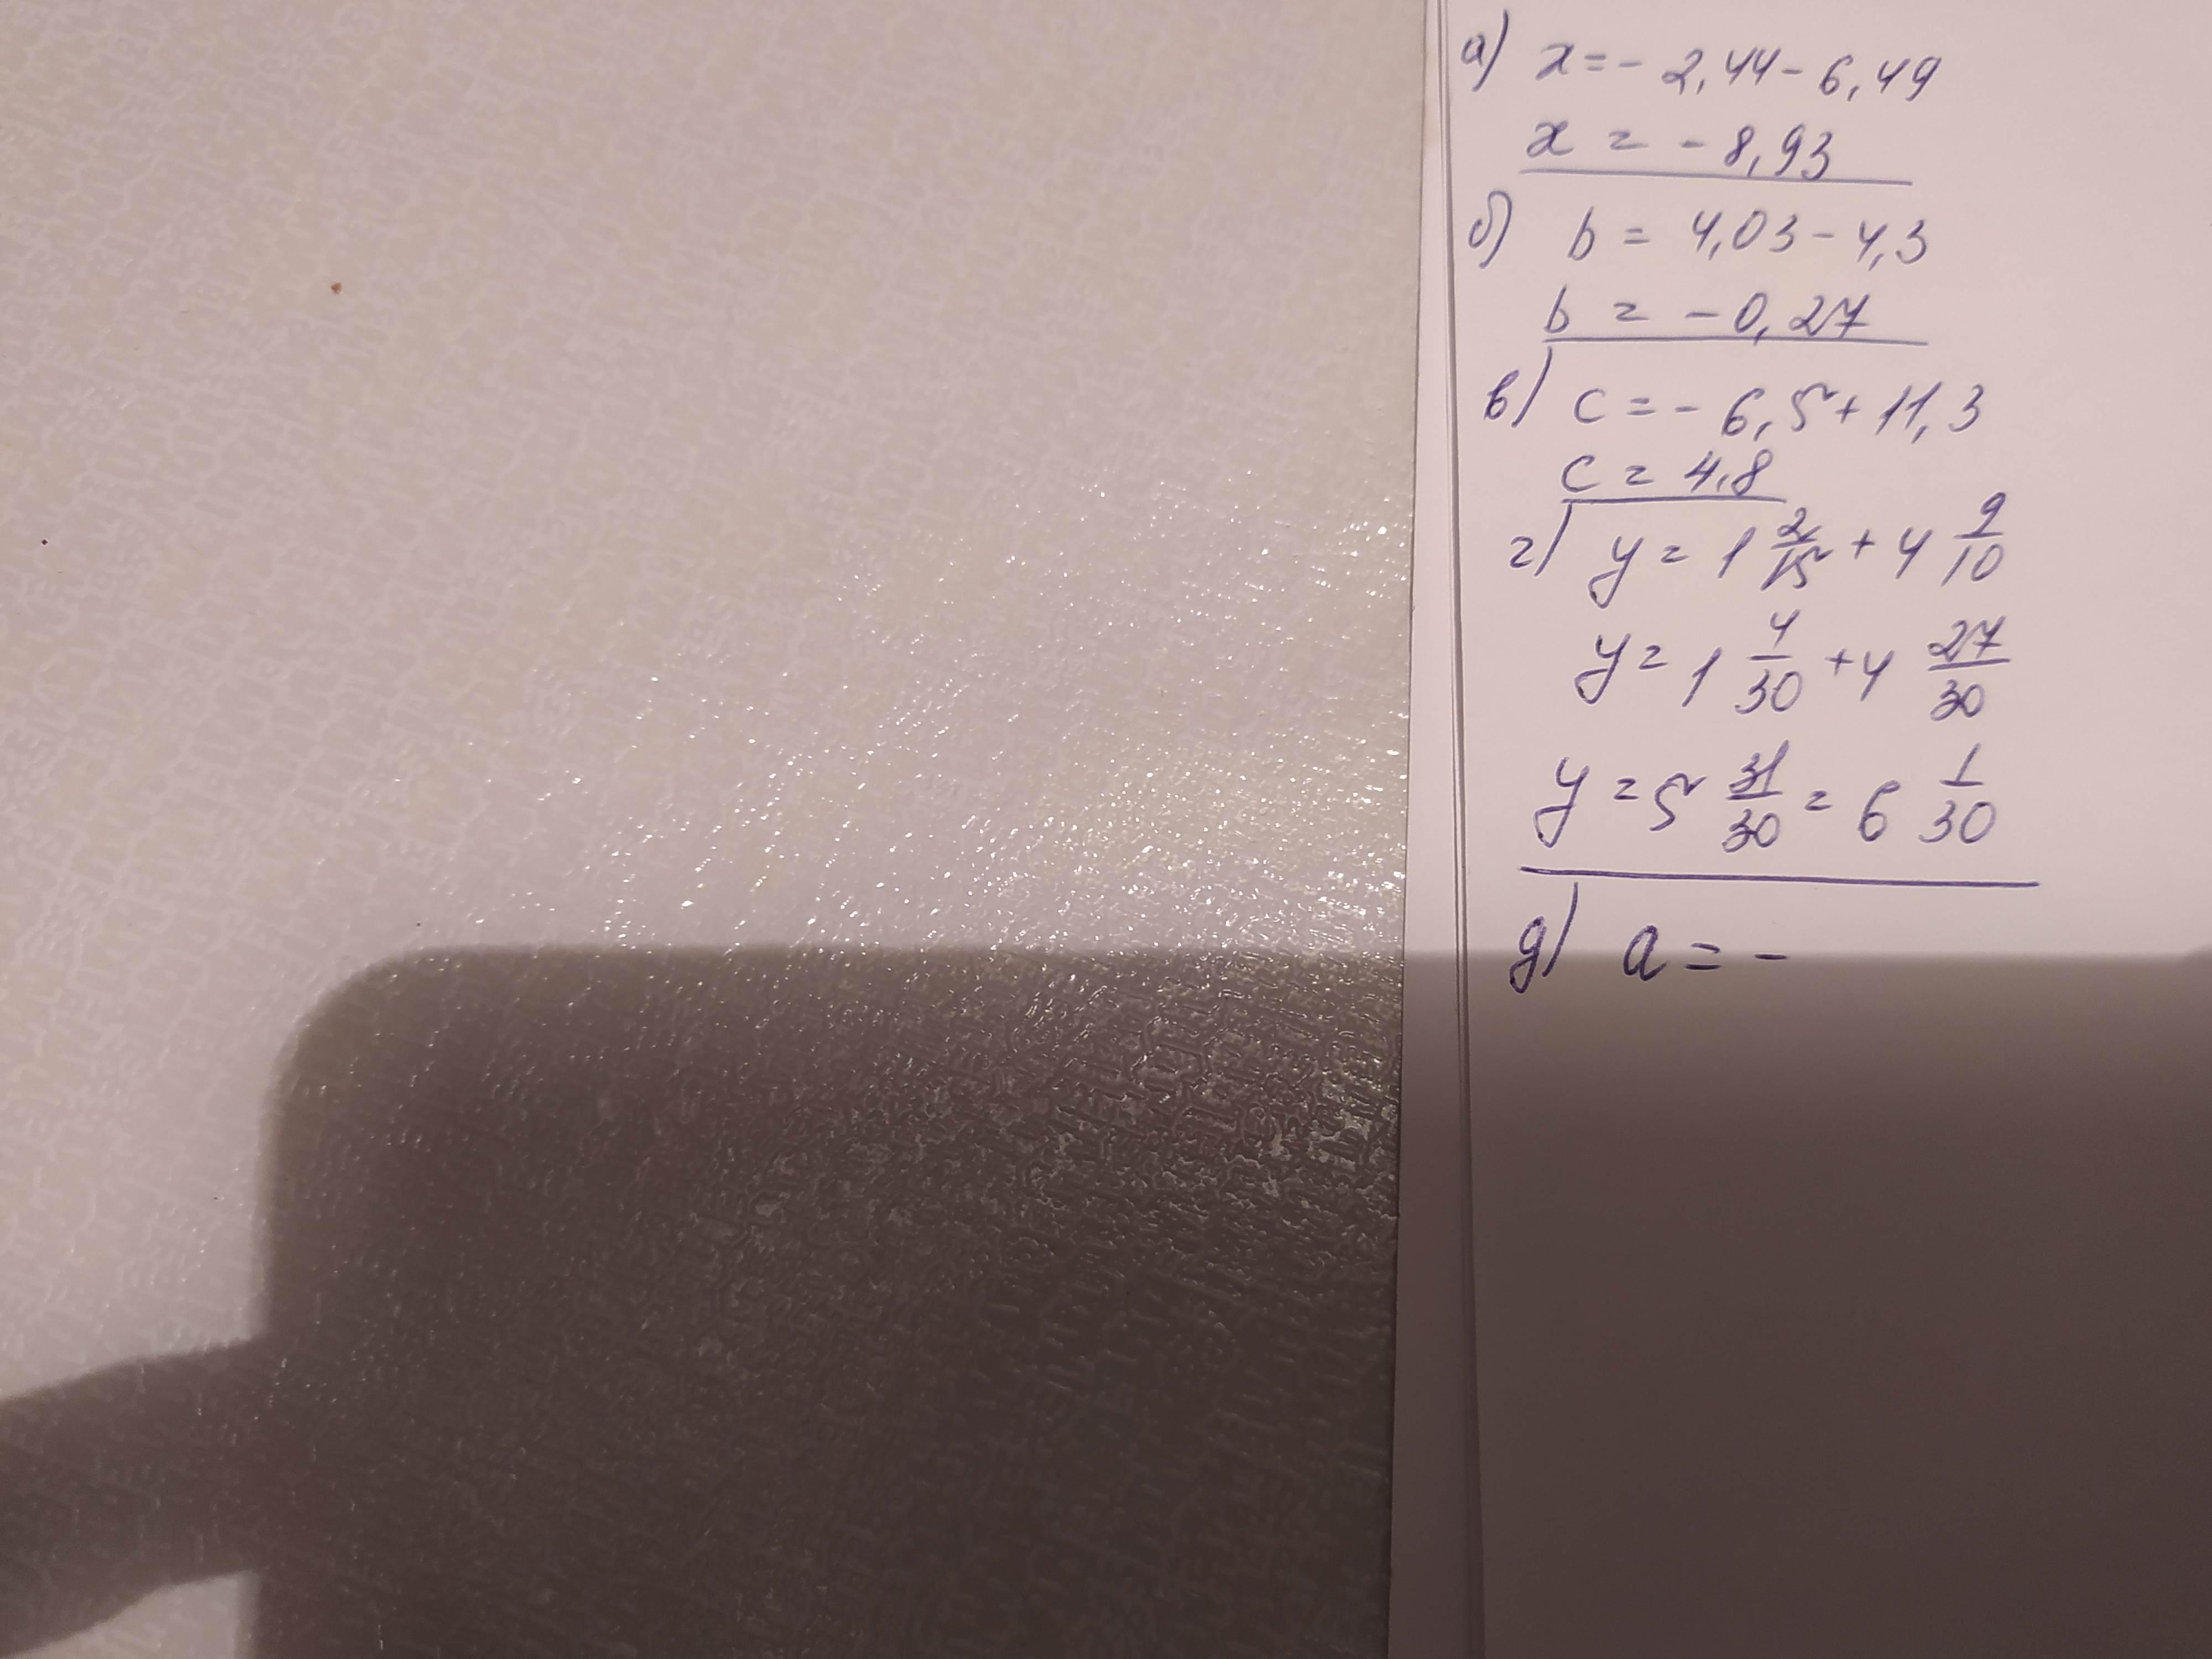 а) x = - 2,44 - 6,49
x = - 8,93
б) b = 4,03 - 4,3
b = - 0,27
в) c = - 6,5 + 11,3
c = 4,8
г) y = 1 2/15 + 4 9/10
y = 1 4/30 + 4 27/30
y = 5 31/30 = 6 1/30
д) a = -